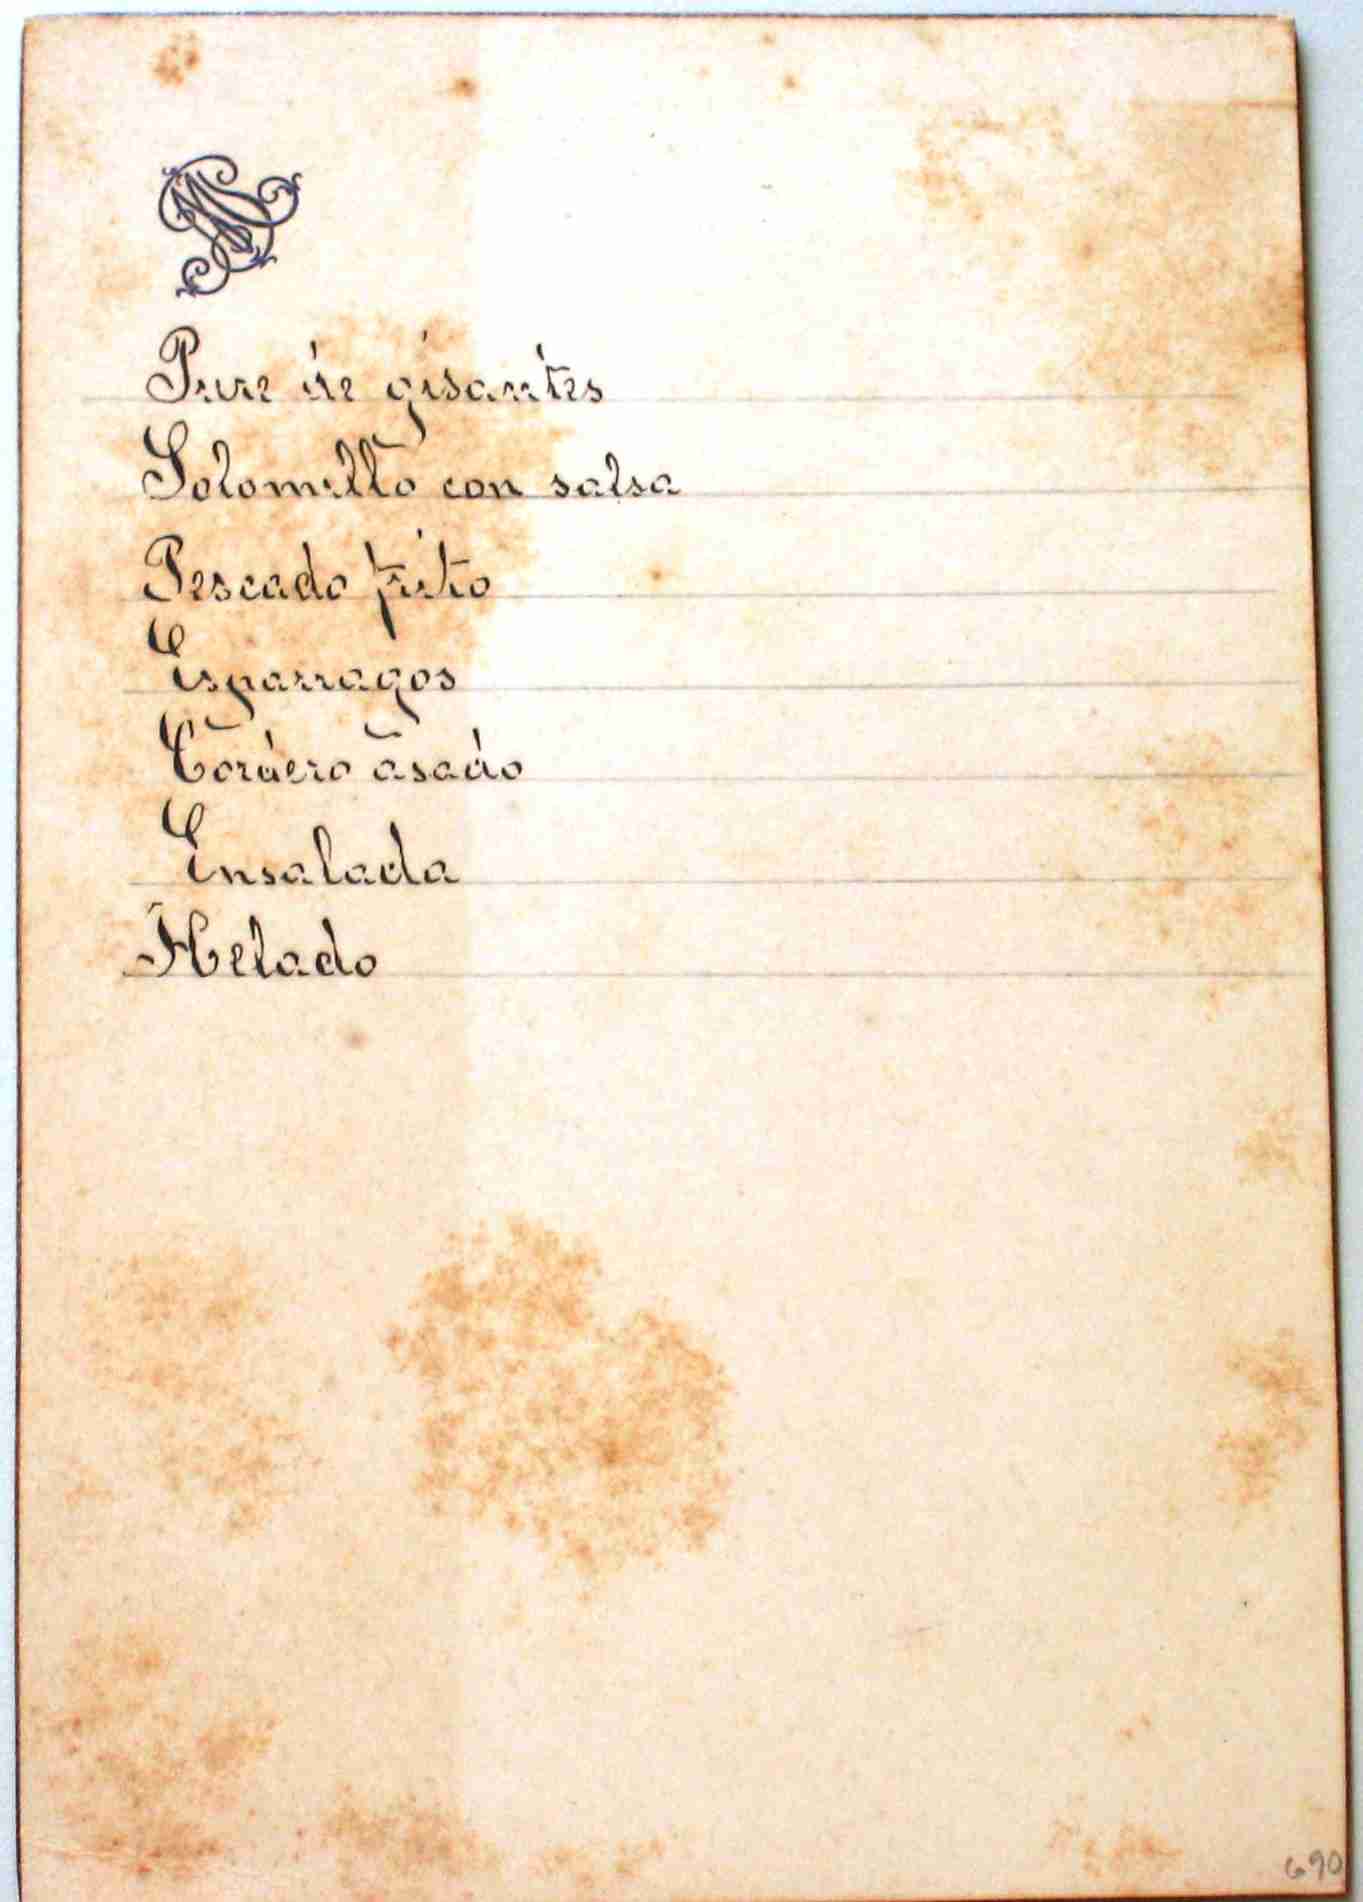 Pure de gisantes
Solomillo con salsa
Pescado frito
Esparragos
Cordero asado
Ensalada
Helado
690